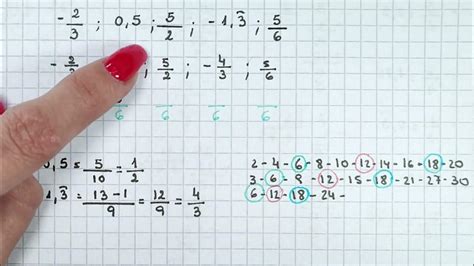 - 2/3 ; 0,5 ; 5/2 ; - 1,3̅ ; 5/6
- 2/3 ; 5/2 ; - 4/3 ; 5/6
6 6 6 6
0,5 = 5/10 = 1/2
1,3̅ = 13-1/9 = 12/9 = 4/3
2-4-6-8-10-12-14-16-18-20
3-6-9-12-15-18-21-27-30
6-12-18-24-